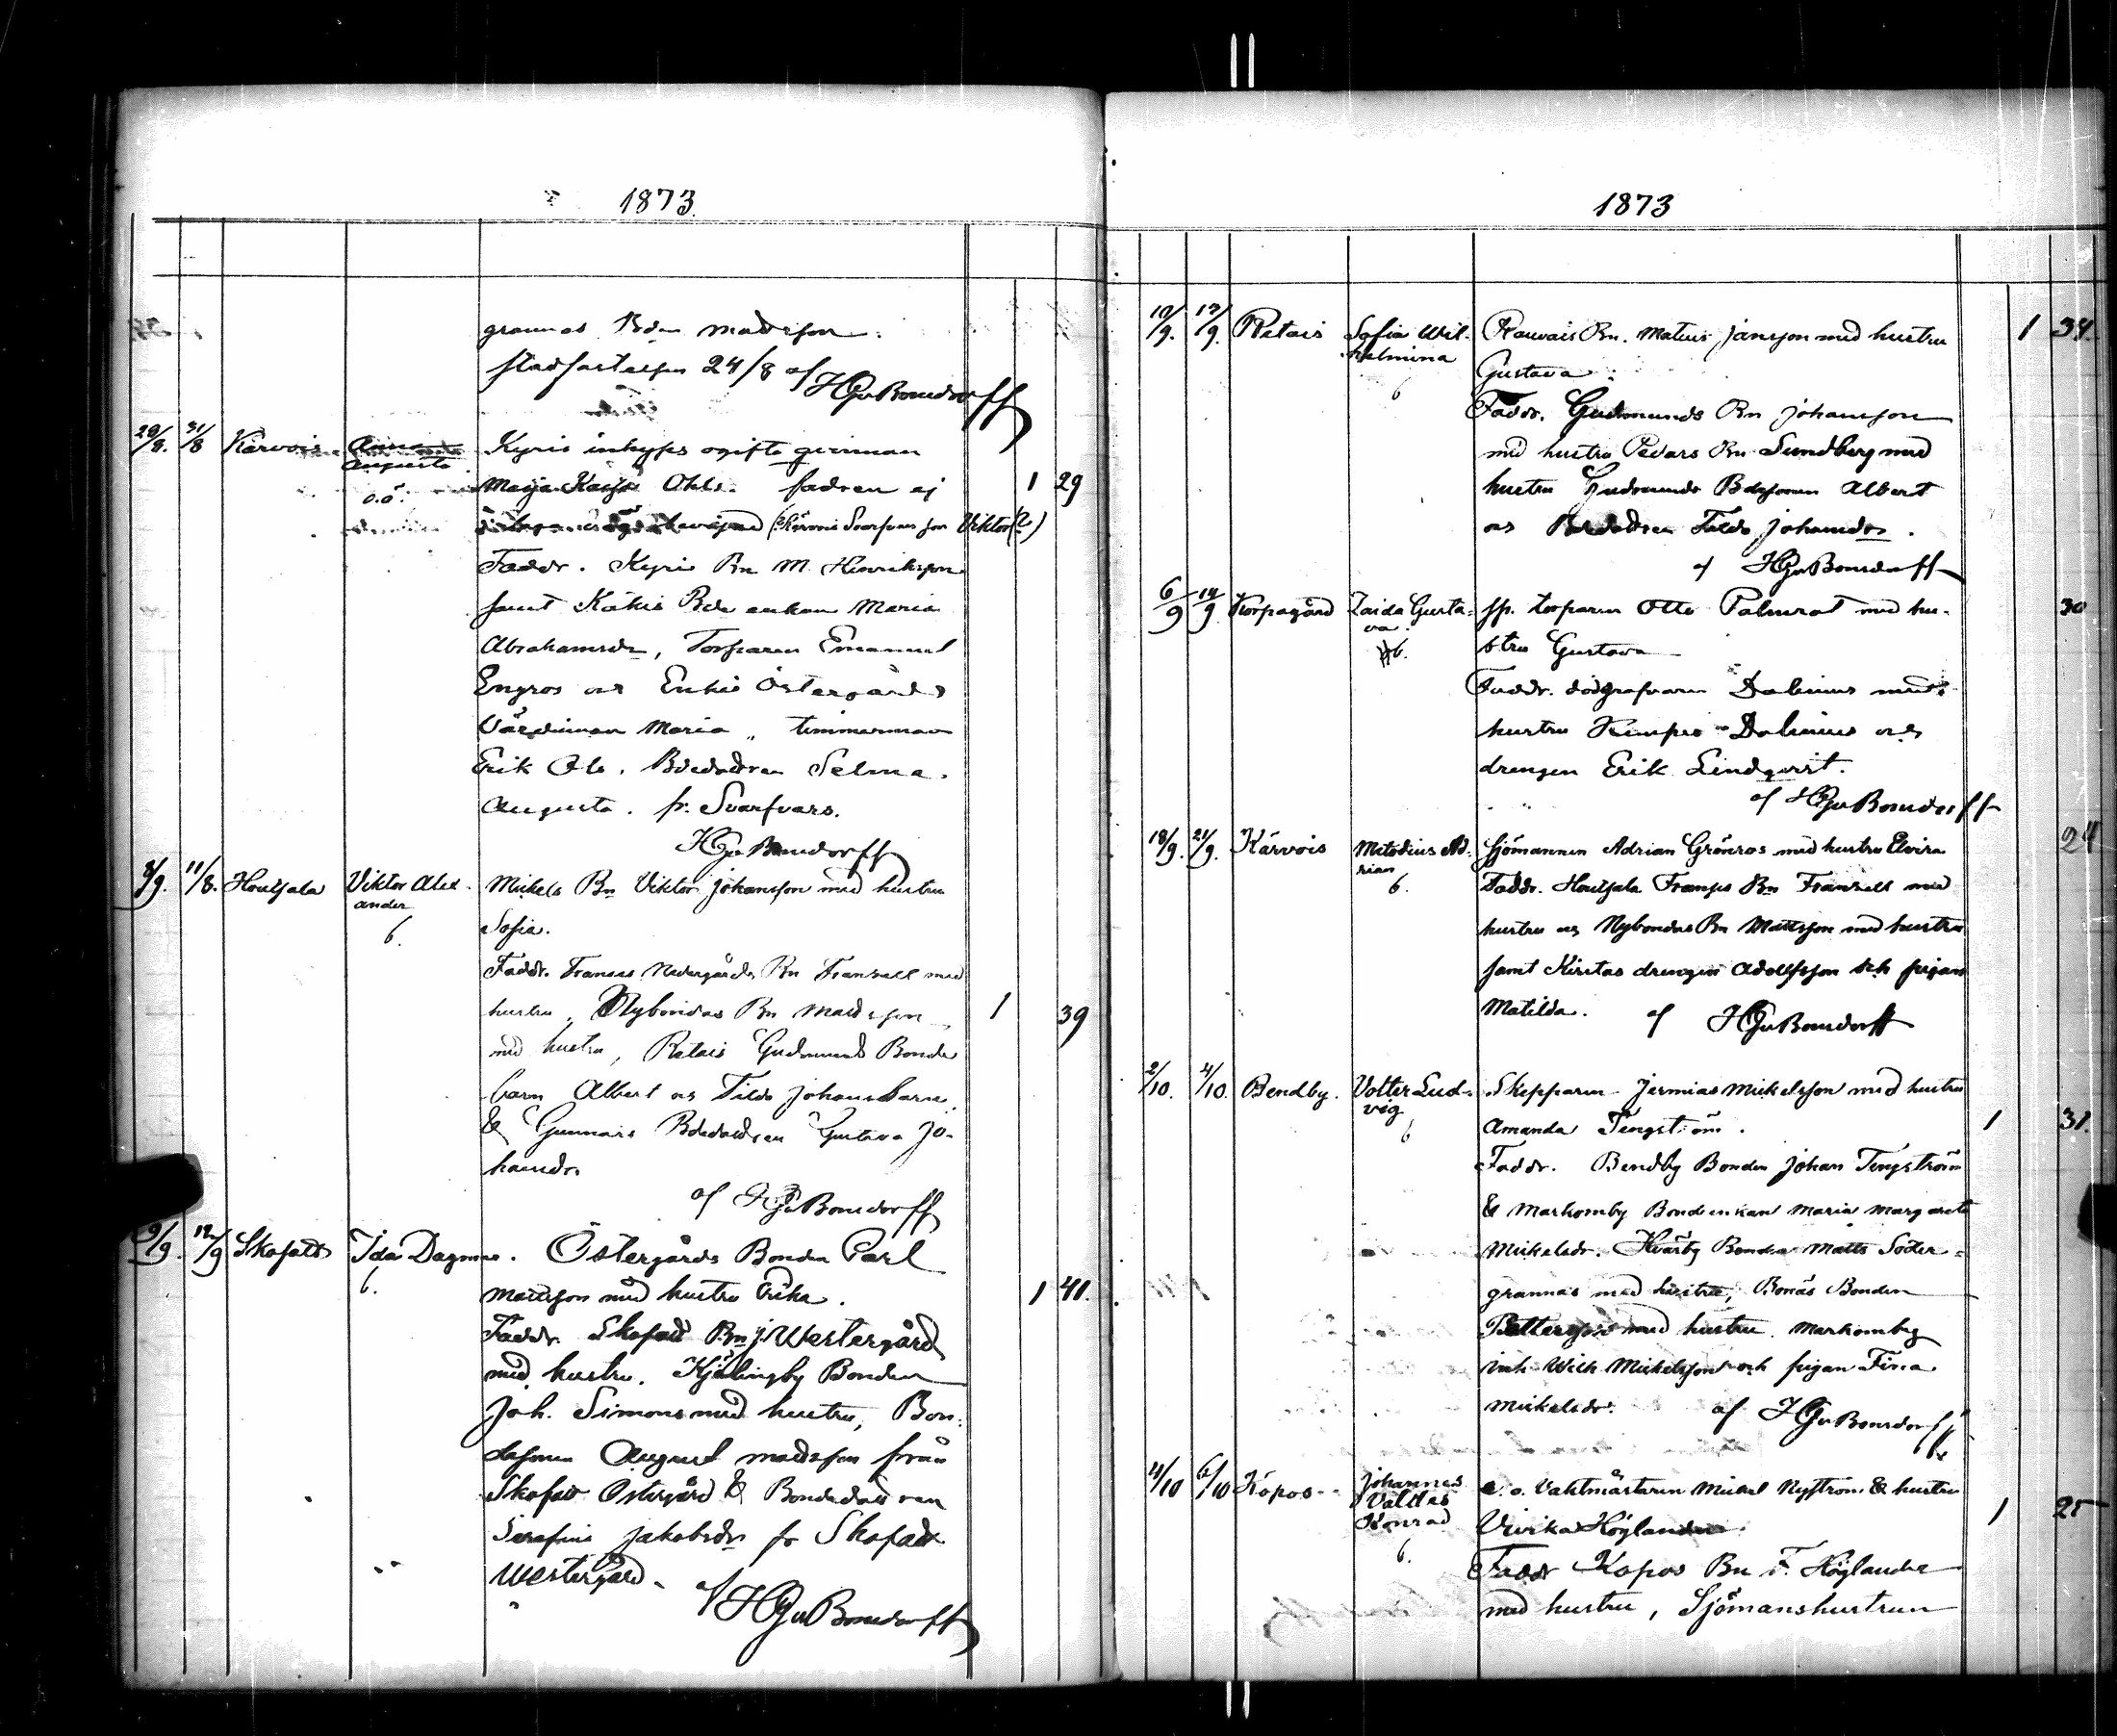 1873.
grannas Bdn Madsson.
stadfästelsen 24/8 af
HGvBonsdorff
28/8. 31/8 Kärvois Anna Kyris inhyses ogifta qvinnan
Augusta
o.ä. Maja Kaisa Ohls. fadren ej 1 29
Svarfvars son Viktor (?)
Faddr. Kyris Bn M. Henriksson
samt Käkis Bde enkan Maria
Abrahamsdr, Torparen Emanuel
Engros och Enkis Östergårds
Värdinnan Maria, timmerman
Erik Ols. Bdedottren Selma
Augusta. fr. Svarfvars.
HGvBonsdorff
8/9. 11/8. Houtsala Viktor Alex- Mickels Bn Viktor Johansson med hustru
ander
6. Sofia.
Faddr. Franses Nedergårds Bn Fransell med
hustru, Nybondas Bn Madsson 1 39
med hustru, Retais Gudmunds Bonde
barn Albert och Tilda Johansbarn
& Gunnars Bdedottren Gustava Jo-
hansdr.
af HGvBonsdorff
9/9. 12/9 Skofalt Ida Dagmar. Östergårds Bonden Carl
6. Mattsson med hustru Erika. 1 41.
Faddr. Skofalt Bn J. Westergård
med hustru. Kjälingby Bonden
Joh. Simons med hustru, Bon-
desonen August Madsson från
Skofalt Östergård & Bondedottren
Serafina Jakobsdr fr Skofalt
Westergård.
af HGvBonsdorff
1873
10/9. 12/9. Retais Sofia Wil- Rauvais Bn. Matts Jansson med hustru 1 34.
helmina
6 Gustava.
Faddr. Gudmunds Bn Johansson
med hustru Pedars Bn Sundberg med
hustru Gudmunds Bdesonen Albert
och Bdedottren Tilda Johansdr.
af HGvBonsdorff
6/9 14/9 Korpogård Zaida Gusta- sp. torparen Otto Palmrot med hu- 30
va.
6. stru Gustava
Faddr. dödgrafvaren Dalenius med
hustru Dalenius och
drengen Erik Lindqvist.
af HGvBonsdorff
18/9. 21/9. Kärvois Metodius Ad- Sjömannen Adrian Grönros med hustru Elvira 24
rian
6. Faddr. Houtsala Franses Bn Fransell med
hustru och Nybondas Bn Mattsson med hustru
samt Kirstas drengen Adolfsson och pigan
Matilda. af HGvBonsdorff
2/10. 4/10. Bendby. Volter Lud- Skepparen Jermias Mickelsson med hustru
vig
6 Amanda Tengström. 1 31.
Faddr. Bendby Bonden Johan Tengström
& Markomby Bondeenkan Maria Margareta
Mickelsdr. Kvarby Bonden Matts Söder-
grannas med hustru, Bonäs Bonden
Pettersson med hustru. Markomby
inh Wilh Mickelsson och pigan Fina
Mickelsdr. af HGvBonsdorff
4/10 6/10 Kopos Johannes e. o. Vaktmästaren Mickel Nyström & hustru
Valdes
Konrad Vivika Höglander. 1 25
6.
Faddr Kopos Bn F. Höglander
med hustru, Sjömanshustrun